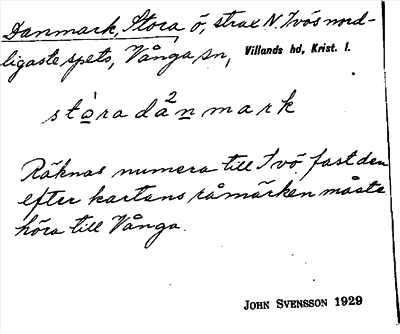 Danmark, Stora ö, strax N. Ivös nord-
ligaste spets, Vånga sn, Villands hd, Krist. l.
stòradan²mark
Räknas numera till Ivö, fast den
efter kartans råmärken måste
höra till Vånga.
JOHN SVENSSON 1929